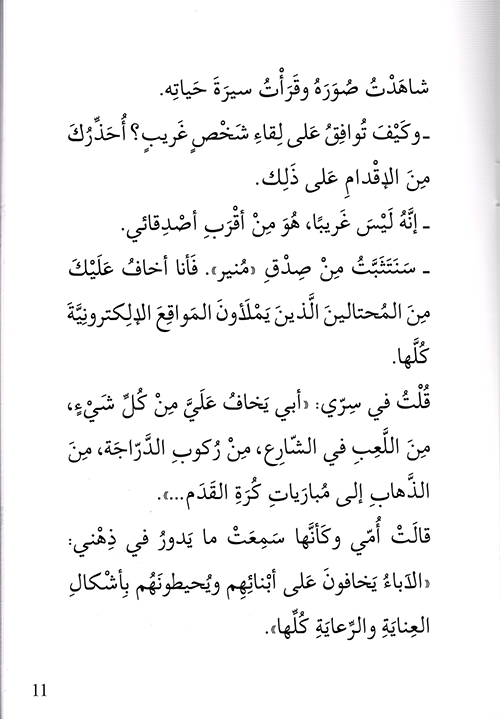 شاهَدْتُ صُوَرَهُ وقَرَأْتُ سيرَةَ حَياتِه.
ـ وكَيْفَ تُوافِقُ عَلى لِقاءِ شَخْصٍ غَريبٍ؟ أُحَذِّرُكَ
مِنَ الإقْدامِ عَلى ذَلِك.
ـ إنَّهُ لَيْسَ غَريبًا، هُوَ مِنْ أقْرَبِ أصْدِقائي.
ـ سَنَتَثَبَّتُ مِنْ صِدْقِ «مُنير». فَأنا أخافُ عَلَيْكَ
مِنَ المُحتالينَ الَّذينَ يَمْلَأونَ المَواقِعَ الإلِكترونِيَّةَ
كُلَّها.
قُلْتُ في سِرّي: «أبي يَخافُ عَلَيَّ مِنْ كُلِّ شَيْءٍ،
مِنَ اللَّعِبِ في الشّارِعِ، مِنْ رُكوبِ الدَّرّاجَة، مِنَ
الذَّهابِ إلى مُبارَياتِ كُرَةِ القَدَم...».
قالَتْ أُمّي وكَأنَّها سَمِعَتْ ما يَدورُ في ذِهْني:
«الآباءُ يَخافونَ عَلى أبْنائِهِم ويُحيطونَهُم بِأشْكالِ
العِنايَةِ والرِّعايَةِ كُلِّها».
11